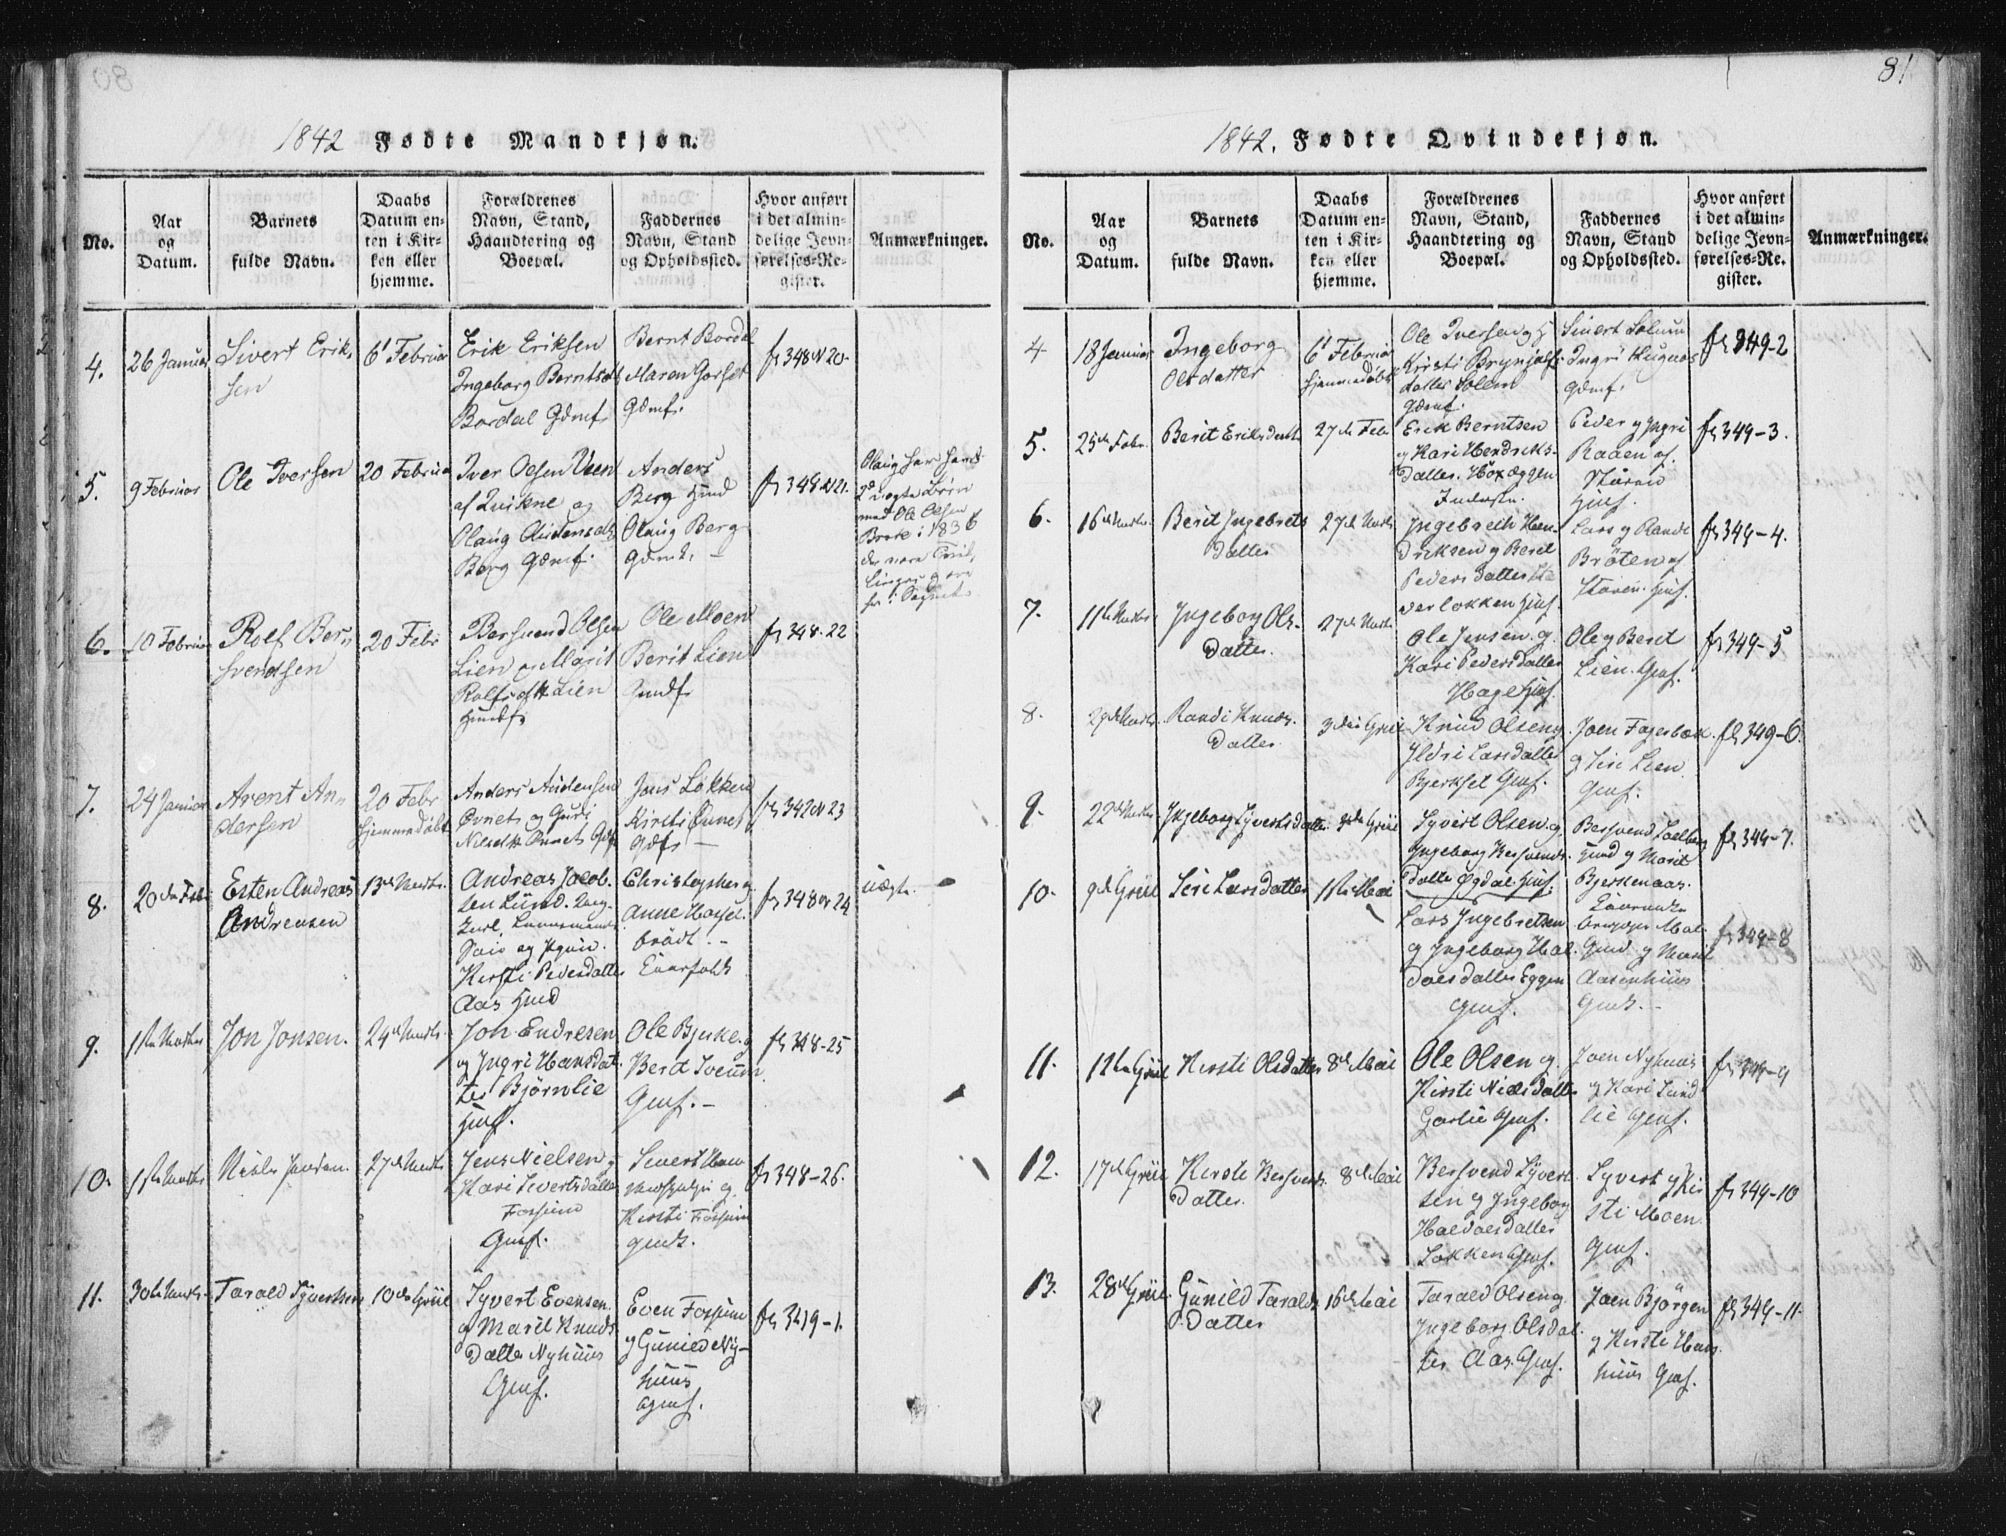 80
1842 Fødte Mandkjøn.
No.
Aar
og
Datum.
Barnets
fulde Navn.
Daabs
Datum en-
ten i Kir-
ken eller
hjemme.
Forældrenes
Navn, Stand,
Haandtering og
Boepæl.
Faddernes
Navn, Stand
og Opholdssted.
Hvor anført
i det almin-
delige Jevn-
førelses-Re-
gister.
Anmærkninger.
4.
26 Januar
Sivert Erik,
sen
6' Februar
Erik Eriksen
Ingeborg Berntsdtr
Bordal Gdmf.
Bernt Bordal
Maren
Gdmf.
fl 348 N 20-
5.
9 Februar
Ole Iversen
20 Februar
Iver Olsen Veen
af Qvikne og
Olaug
Berg Gdmf.
Anders
Berg
Olaug Berg
fl 348 N 21.
Olaug har havt
uægte Børn
med Ole Olsen
i 1836
6.
10 Februar
Rolf Ber,,
svendsen
20 Febr
Bersvend Olsen
Lien og Marit
Rolfsdtr Lien
Ole Moen
Berit Lien
fl 348-22
7.
24 Januar
Arent An,,
dersen
20 Febr
hjemmedøbt
Anders Andersen
Øvnets og Guri
Jens Løkken
Kirsti
fl 342 N 23
8.
20de Febr
Esten Andreas
Andreasen
13de Marts.
Andreas Jacob.
sen Lund.
Kersti Pedersdatter
Aas
Christopher og
Anne
brødt. -
fl 348 N 24
uægte.
9.
1ste Marts
Jon Jonsen.
24de Marts.
Jon Endresen
og Ingri Hansdat
ter Bjørnlie
Gmf.
Ole Bjerke og
Berit
Gmf. -
fl 348-25
10.
1ste Marts
Niels Jensen.
27de Marts
Jens Nielsen og
Kari Sivertsdatter
Fossum
Gmf.
Sivert
Kersti Fossum
fl 348-26.
11.
30te Marts.
Tarald Syvertsen
10de April
Syvert Evensen
og Marit Knuds
Datter Nyhuus
Gmf.
Even Fossum
og Gunild Ny-
huus
Gmf.
fl 349-1.
81
1842. Fødte Qvindekjøn.
No.
Aar
og
Datum.
Barnets
fulde Navn.
Daabs
Datum en-
ten i Kir-
ken eller
hjemme.
Forældrenes
Navn, Stand,
Haandtering og
Boepæl.
Faddernes
Navn, Stand
og Opholdssted.
Hvor anført
i det almin-
delige Jevn-
førelses-Re-
gister.
Anmærkninger.
4
18 Januar
Ingeborg
Olsdatter
6' Februar
hjemmedøbt
Ole Iversen og
Kirsti Brynjulfs
datter Solem
Gdmf.
Sivert Solum
Ingri
Gdmf.
fl 349-2
5.
25de Febr.
Berit Eriksdatter
27de Febr
Erik Berntsen
og Kari Hendriks-
datter.
Peder og Ingri
Raaen af
Støren
fl 349-3.
6.
16de Marts.
Berit Ingebrets
Datter
27de Marts
Ingebreth Hen-
driksen og Beret
Peders datter
verløkken
Lars og Rande
Brøten af
Støren.
fl 349-4.
7.
11te Marts
Ingeborg Ols-
Datter.
27de Marts
Ole Jensen og
Kari Pedersdatter
Hage
Ole og Beret
Lien. Gmf.
fl 349-5
8.
29de Marts.
Randi Knuds-
Datter
3die April
Knud Olsen og
Ildri Larsdatter
Bjerkset Gmf.
Joen Fagerbæk.
og Siri Lien
Gmf.
fl 349-6.
9.
22de Marts.
Ingeborg Syvertsdatter
3die April
Syvert Olsen og
Ingeborg Bersvends
Datter Øgdal
Bersvend
og Marit
Bjerkenaas.
fl 349-7.
10.
9de April
Siri Larsdatter
1ste Mai
Lars Ingebretsen
og Ingeborg Hal-
dorsdatter Eggen
Gmf.
og Marit
Aasenhuus
fl 349-8
11.
11te April
Kersti Olsdatter
8de Mai
Ole Olsen og
Kirsti Nielsdatter
Garlie Gmf.
Joen Nyhuus
og Kari Lund
lie Gmf.
fl 349-9
12.
17de April
Kersti Bersvends
Datter.
8de Mai
Bersvend Syvert
sen og Ingeborg
Haldorsdatter
Løkken Gmf.
Syvert og Kir
sti Moen
Gmf.
fl 349-10
13.
28de April
Gunild Taralds
Datter
16de Mai
Tarald Olsen og
Ingeborg Olsdat
ter Aas. Gmf.
Joen Bjørgen
og Kirsti
huus Gmf.
fl 349-11.